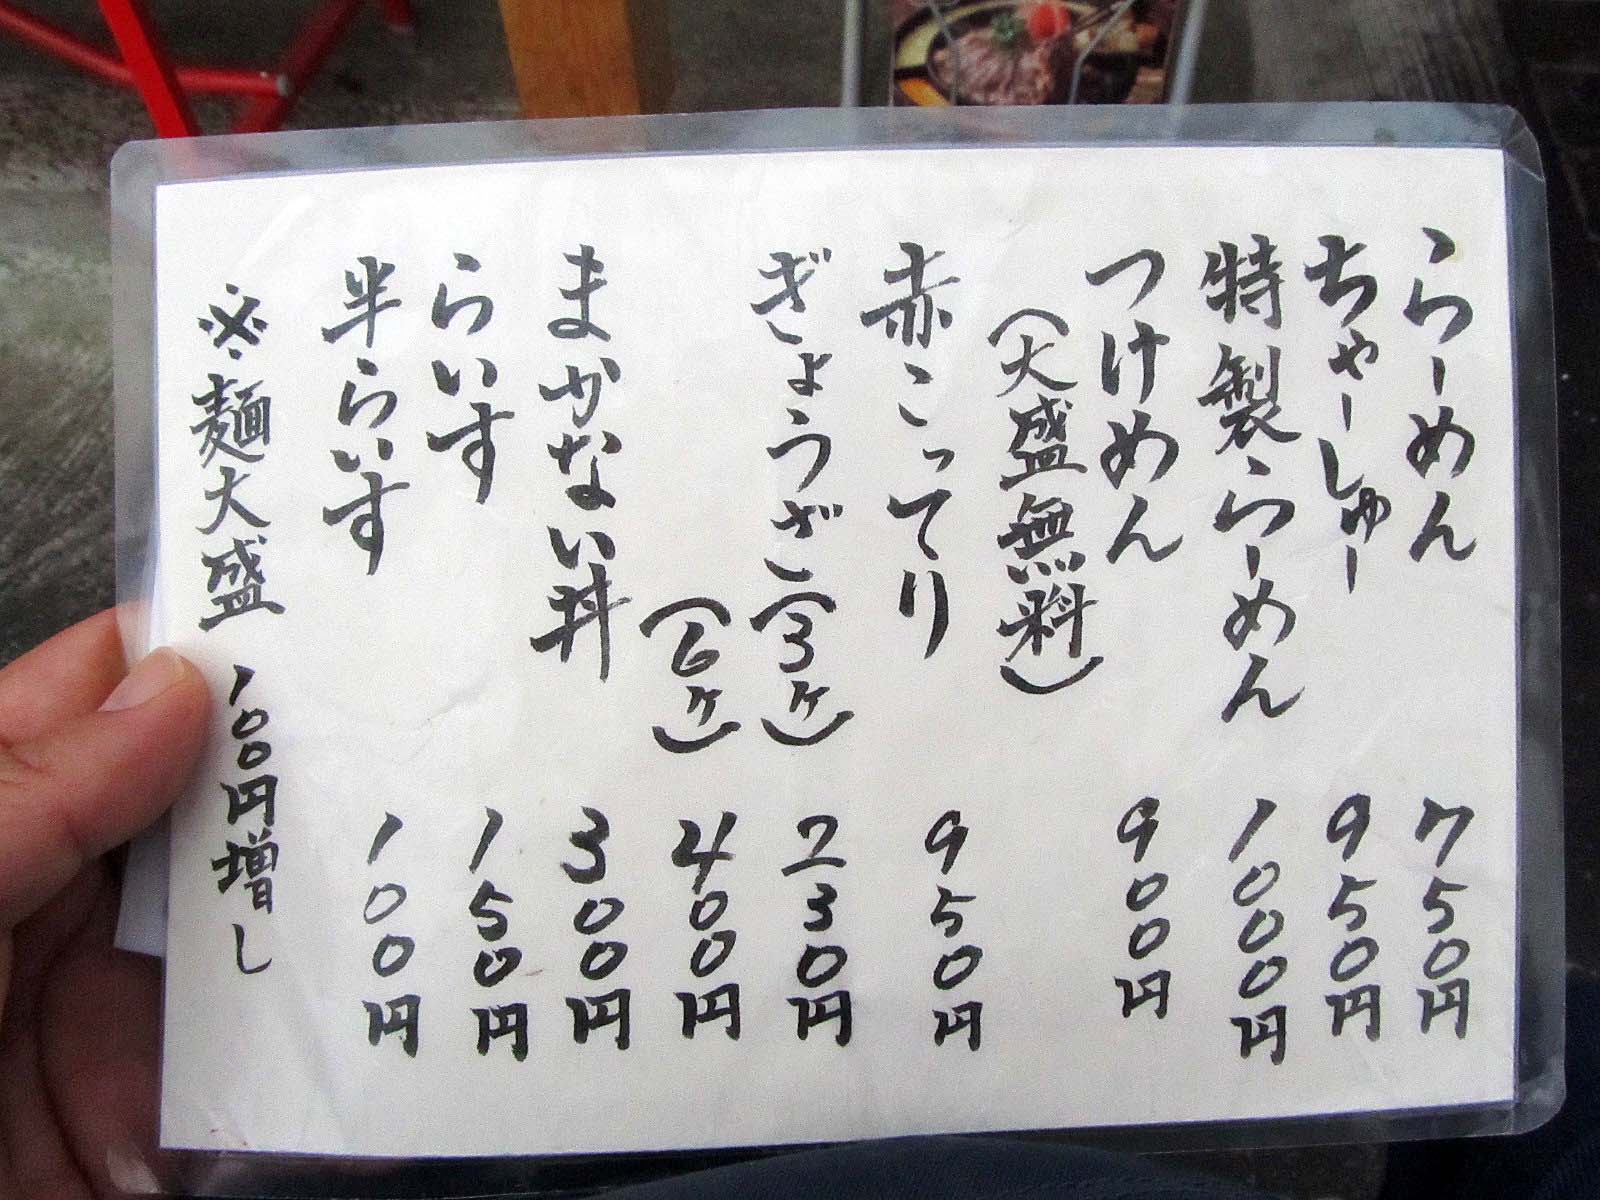 らーめん 750円
ちゃーしゅー 950円
特製らーめん 1000円
つけめん 900円
(大盛無料)
赤こってり 950円
ぎょうざ(3ヶ) 230円
(6ヶ) 400円
まかない丼 300円
らいす 150円
半らいす 100円
※麺大盛 100円増し